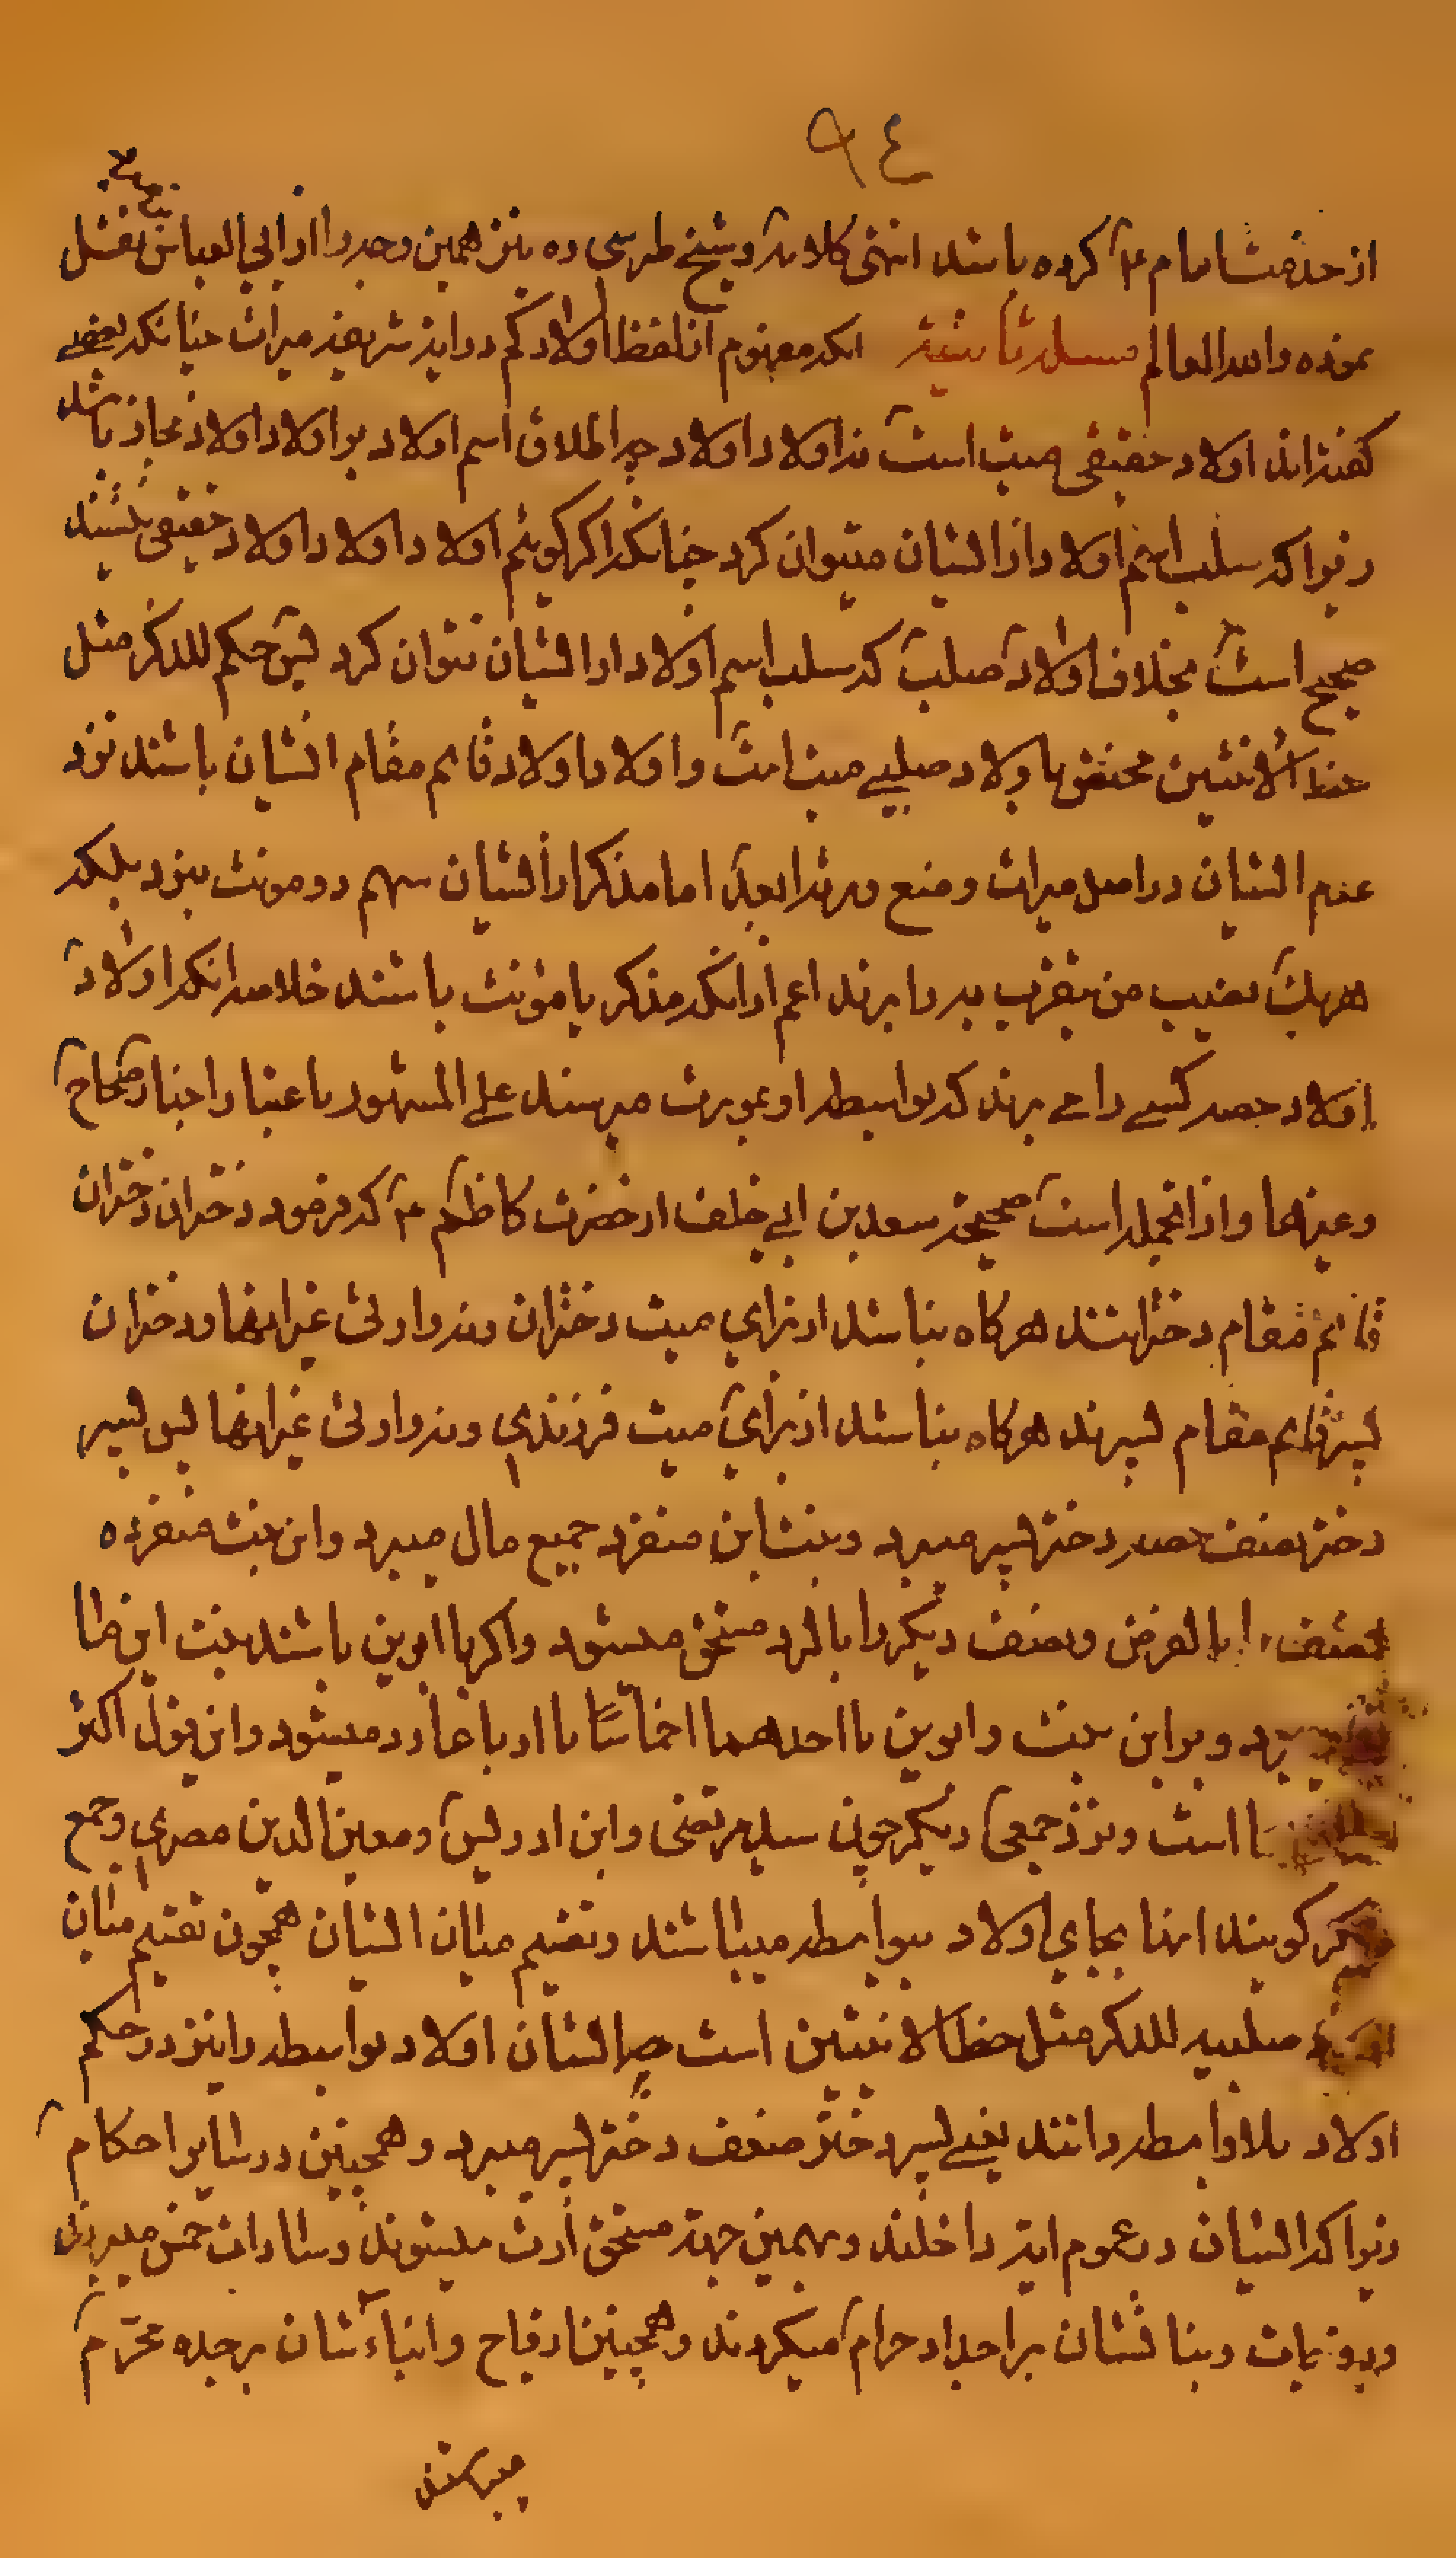 ٩٤
از حذفش امام ع کرده باشد انتهی کلامه و شیخ طبرسی ره نیز همین وجه را از ابی العباس نقل
نموده والله العالم مسئله ثانیه انکه مفهوم از لفظ اولادکم در ایه شریفه میراث چنانکه بعضی
کفته‌اند اولاد حقیقی میت است نه اولاد اولاد چه اطلاق اسم اولاد بر اولاد اولاد مجاز باشد
زیرا که سلب اسم اولاد از ایشان میتوان کرد چنانکه اکر کوئیم اولاد اولاد اولاد حقیقی نیستند
صحیح است بخلاف اولاد صلب که سلب اسم اولاد از ایشان نتوان کرد پس حکم للذکر مثل
حظ الانثیین مختص باولاد صلبی میت است و اولاد اولاد قایم مقام ایشان باشند نزد
عدم ایشان در اصل میراث و منع مرتبه ابعد اما مذکر از ایشان سهم دو مونث نبرد بلکه
هر یک نصیب من یتقرب به را برند اعم از انکه مذکر یا مؤنث باشند خلاصه انکه اولاد
اولاد حصه کسی را می برند که بواسطه او بمورث میرسند علی المشهور باعتبار اخبار صحاح
و غیرها و از انجمله است صحیحه سعد بن ابی خلف از حضرت کاظم ع که فرمود دختران دختران
قائم مقام دخترانند هرکاه نباشد از برای میت دختران و نه وارثی غیر اینها و دختران
پسر قایم مقام پسرند هرکاه نباشد از برای میت فرزندی و نه وارثی غیر اینها پس پسر
دختر نصف حصه دختر پسر میبرد و بنت ابن منفرد جمیع مال میبرد و ابن بنت منفرده
نصف را بالفرض و نصف دیکر را بالرد مستحق میشود و اکر با ابوین باشند بنت ابن ما
میبرد و بر ابن بنت و ابوین با احدهما اخماسًا یا ارباعا رد میشود و این قول اکثر
است و نزد جمعی دیکر چون سید مرتضی و ابن ادریس و معین الدین مصری و جمع
دیکر کویند اینها بجای اولاد بیواسطه میباشند و تقسیم میان ایشان همچون تقسیم میان
اولاد صلبیه للذکر مثل حظ الانثیین است چه ایشان اولاد بواسطه را نیز در حکم
اولاد بلاواسطه دانند یعنی پسر دختر ضعف دختر پسر میبرد و همچنین در سایر احکام
زیرا که ایشان در عموم ایه داخلند و بهمین جهة مستحق ارث میشوند و سادات خمس میبرند
و زوجات و بناتشان بر اجداد حرام میکردند و همچنین ازواج و ابناءشان بر جده محرّم
میباشند